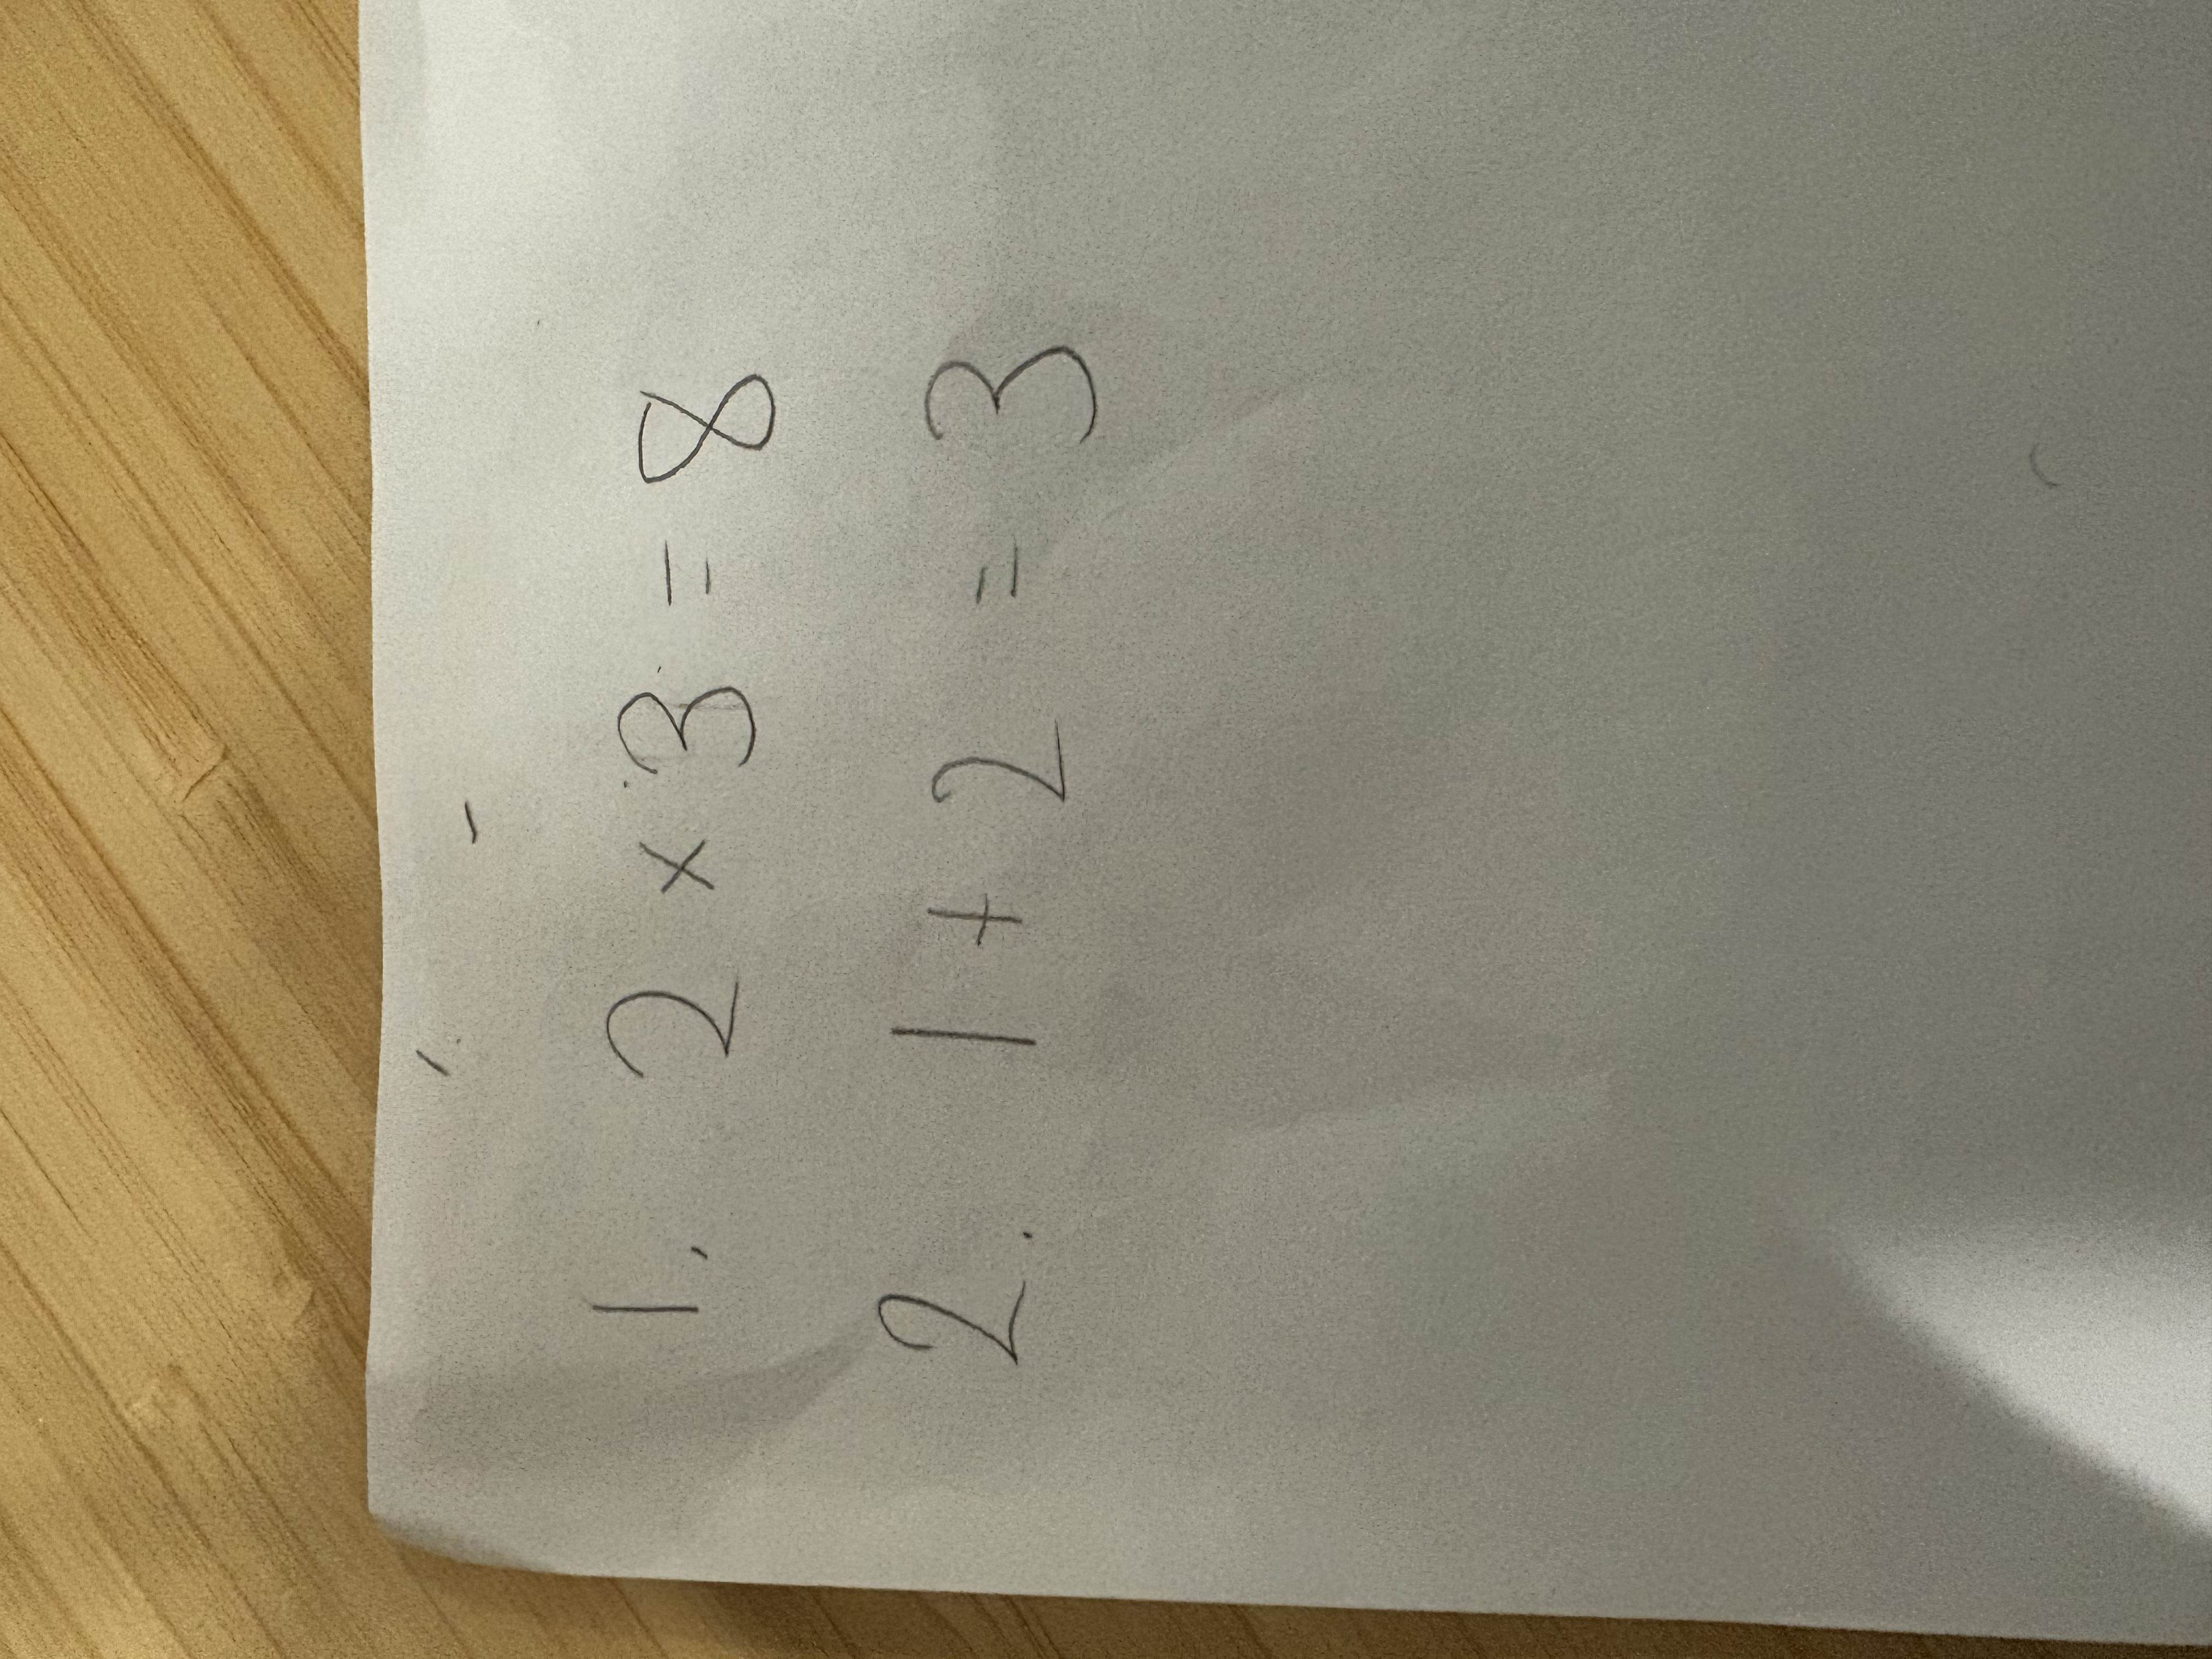 1. 2 × 3 = 8
2. 1 + 2 = 3